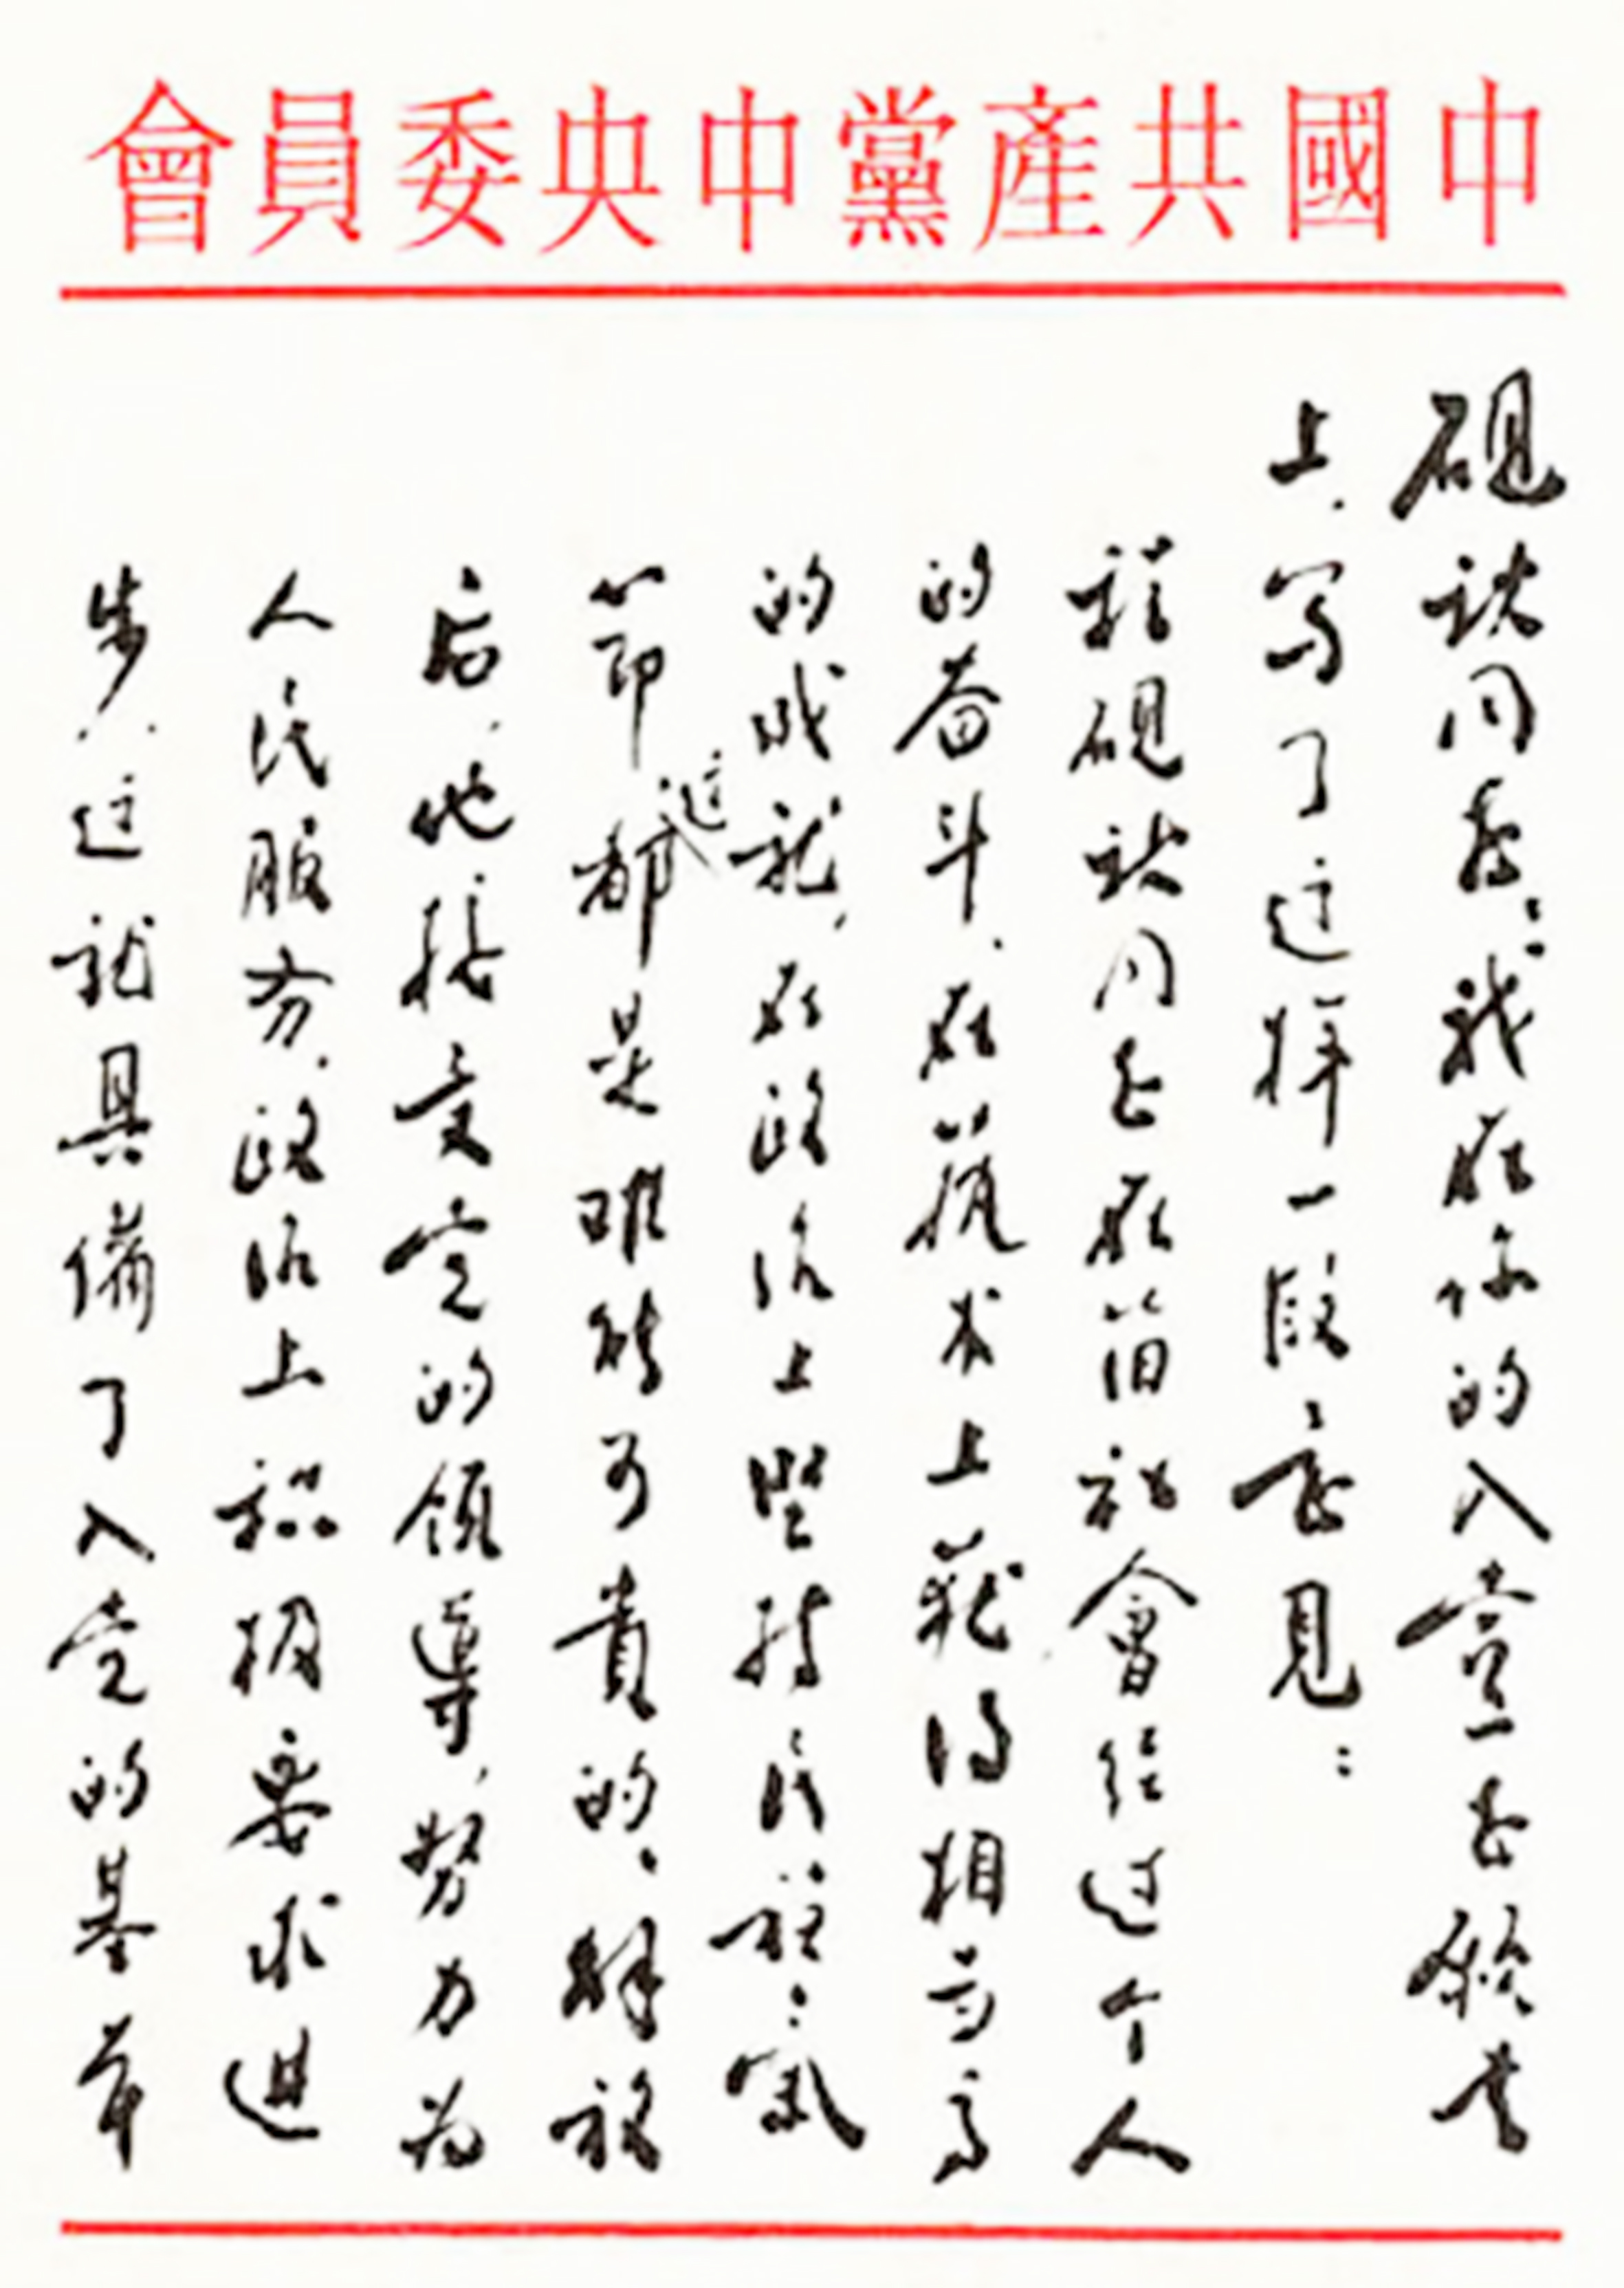 中國共產黨中央委員會
砚秋同志：我在你的入党志願书
上，写了这样一段意见：
程砚秋同志在旧社會经过个人
的奋斗，在艺术上获得相当高
的成就，在政治上坚持民族气
节，这都是难能可貴的。解放
后，他接受党的領導，努力为
人民服务，政治上积极要求进
步，这就具備了入党的基本